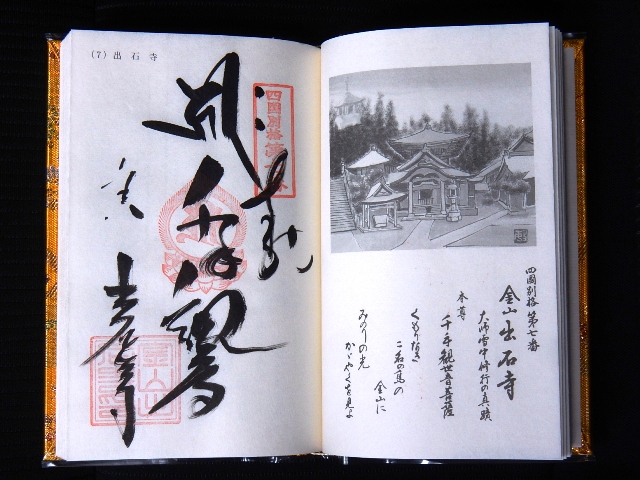 (7) 出石寺
奉
千手観
出石寺
四國別格第七番
四國別格 第七番
金山出石寺
大師雪中修行の真蹟
本尊
千手観世音菩薩
くもりなき
二名の島の
金山に
みのりの光
かゞやくを見よ